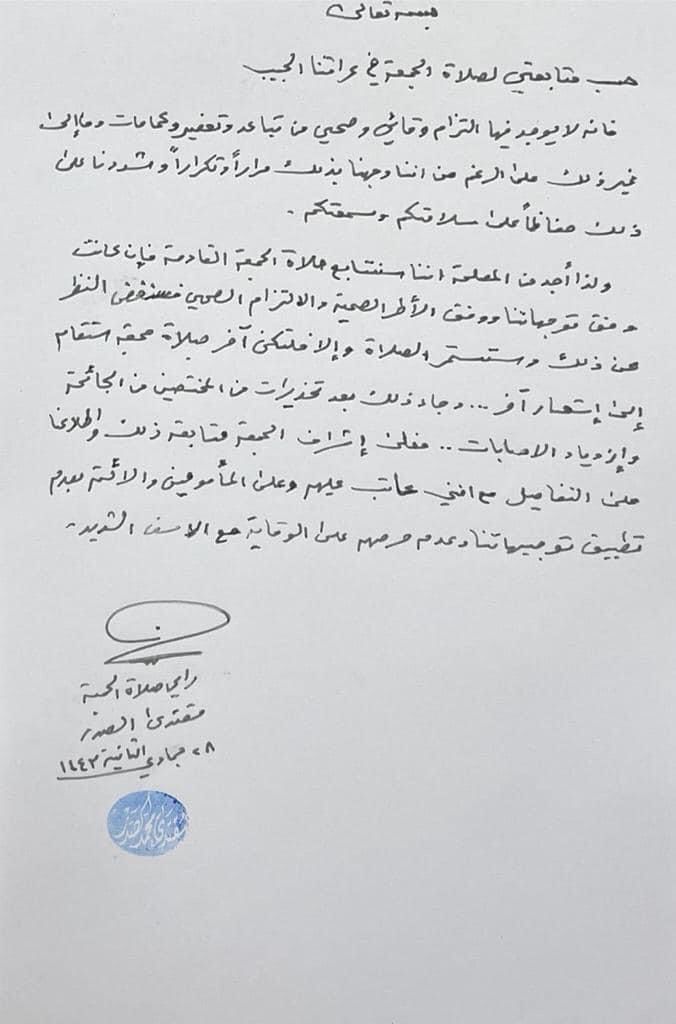 بسمه تعالى
حسب متابعتي لصلاة الجمعة في عراقنا الحبيب
فانه لا يوجد فيها التزام وقائي وصحي من تباعد وتعفير وكمامات وما إلى
غير ذلك على الرغم من اننا وجهنا بذلك مراراً وتكراراً وشددنا على
ذلك حفاظاً على سلامتكم وسمعتكم.
ولذا أجد من المصلحة اننا سنتابع صلاة الجمعة القادمة فإن كانت
وفق توجيهاتنا ووفق الأطر الصحية والالتزام الصحي فسنغض النظر
عن ذلك وستستمر الصلاة وإلا فلتكن آخر صلاة جمعة ستقام
إلى إشعار آخر... وجاء ذلك بعد تحذيرات من المختصين من الجائحة
وإزدياد الاصابات.. فعلى إشراف الجمعة متابعة ذلك وإطلاعنا
على التفاصيل مع انني عاتب عليهم وعلى المأمومين والائمة لعدم
تطبيق توجيهاتنا وعدم حرصهم على الوقاية مع الاسف الشديد.
راعي صلاة الجمعة
مقتدى الصدر
٢٨ جمادي الثانية ١٤٤٣
مقتدى محمد الصدر